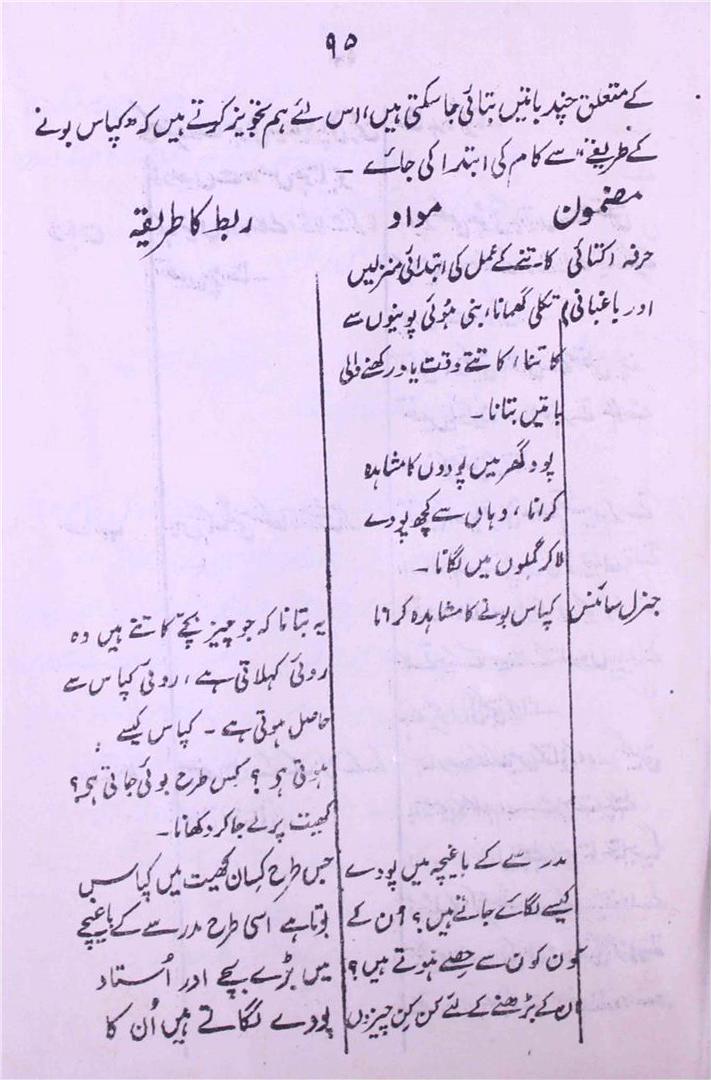 ۹۵
کے متعلق چند باتیں بتائی جا سکتی ہیں، اس لئے ہم تجویز کرتے ہیں کہ "کپاس بونے
کے طریقے" سے کام کی ابتدا کی جائے ۔
مضمون مواد ربط کا طریقہ
حرفہ (کتائی کاتنے کے عمل کی ابتدائی منزلیں
اور باغبانی) تکلی گھمانا، بنی ہوئی پونیوں سے
کاتنا، کاتتے وقت یاد رکھنے والی
باتیں بتانا۔
پود گھر میں پودوں کا مشاہدہ
کرانا، وہاں سے کچھ پودے
لا کر گملوں میں لگانا ۔
جنرل سائنس کپاس بونے کا مشاہدہ کرانا یہ بتانا کہ جو چیز بچے کاتتے ہیں وہ
روئی کہلاتی ہے، روئی کپاس سے
حاصل ہوتی ہے ۔ کپاس کیسے
ہوتی ہے؟ کس طرح بوئی جاتی ہے؟
کھیت پر لے جا کر دکھانا۔
مدرسے کے باغیچہ میں پودے جس طرح کسان کھیت میں کپاس
کیسے لگائے جاتے ہیں؟ ان کے بوتا ہے اسی طرح مدرسے کے باغیچے
کون کون سے حصے ہوتے ہیں؟ میں بڑے بچے اور اُستاد
ان کے بڑھنے کے لئے کن کن چیزوں پودے لگاتے ہیں اُن کا